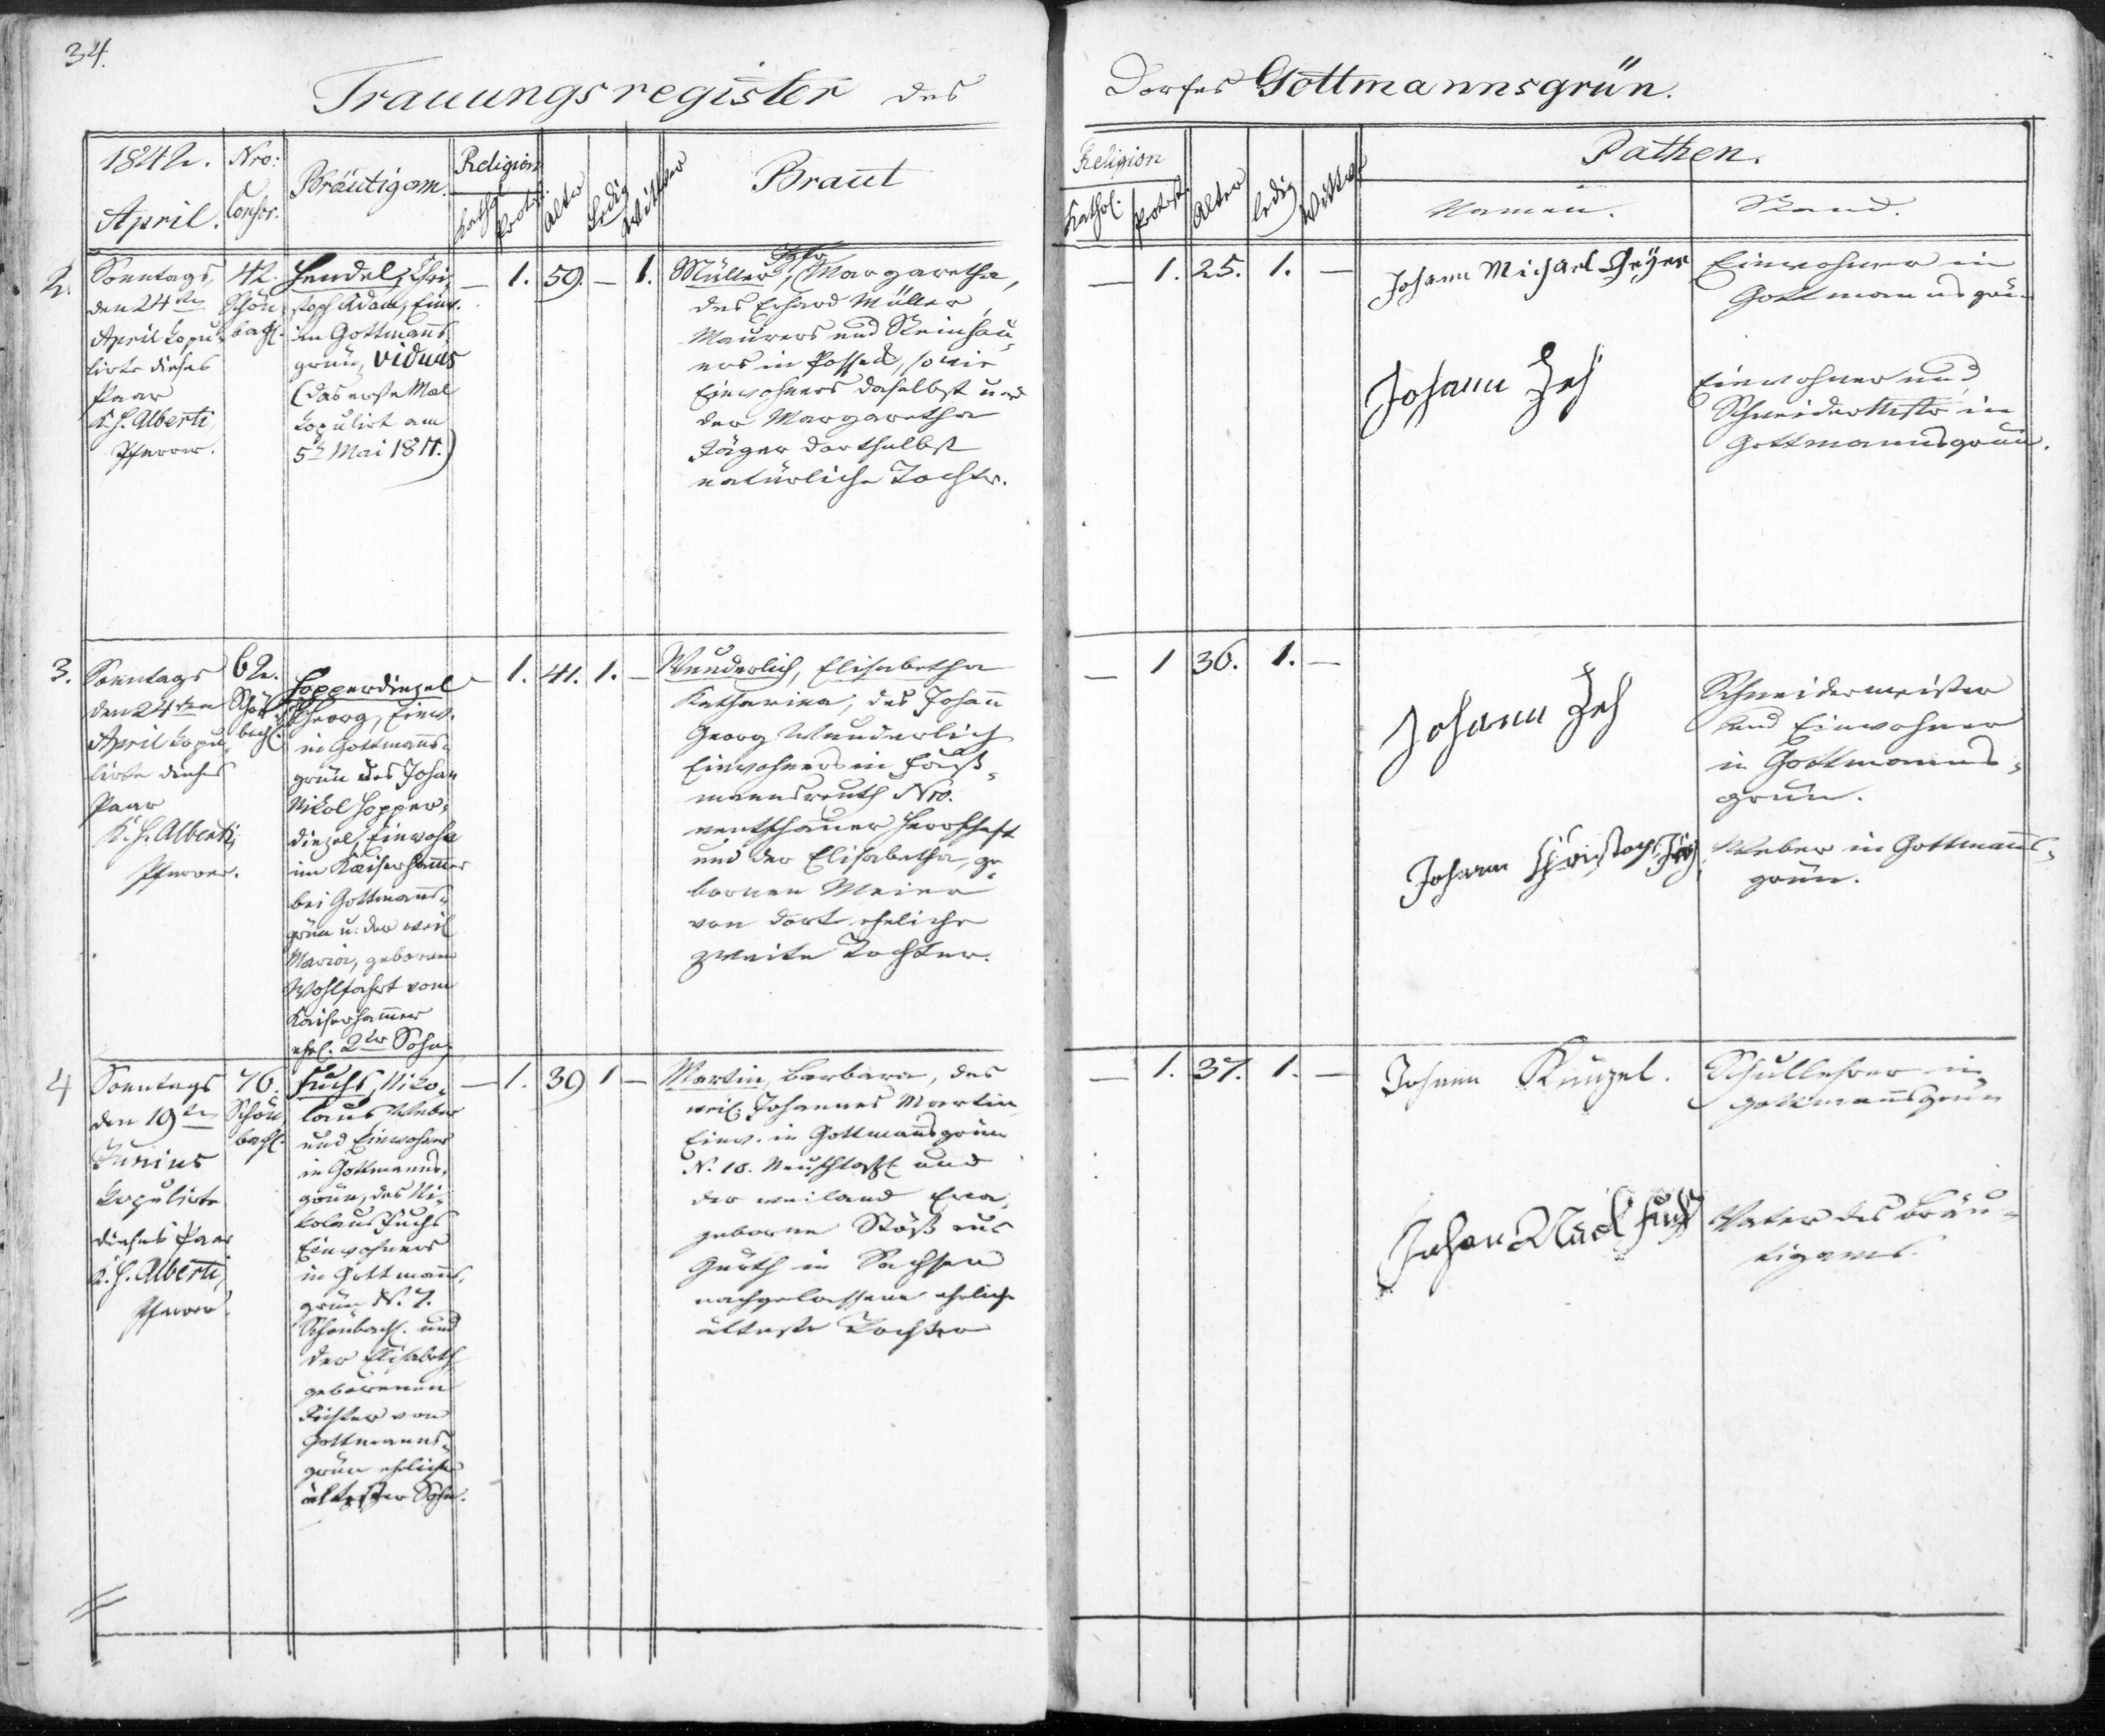 34.
Trauungsregister des
Dorfes Gottmannsgrün.
1842.
April.
Nro:
Conscr.
Bräutigam.
Religion
kathol.
protest.
Alter
Ledig
Wittwer
Braut
Religion
Kathol.
protest.
Alter
ledig
Wittwe
Pathen.
Namen.
Stand.
2.
Sonntags,
den 24ten
April kopu-
lirte dieses
Paar
K. H. Alberti,
Pfarrer.
42.
Schön-
bach.
Hendel, Chri-
stoph Adam, Einw.
in Gottmanns-
grün, viduus
(das erste Mal
kopulirt am
5t Mai 1811.)
— 1. 59. — 1.
Müller, Margaretha,
des Erhard Müller,
Maurers und Steinhau-
ers in Posseck, sowie
Einwohners daselbst und
der Margaretha
Jäger dorthselbst
natürliche Tochter.
— 1. 25. 1. —
Johann Michael Geÿer
Einwohner in
Gottmannsgrün
Johann Zeh
Einwohner und
Schneidermstr in
Gottmannsgrün.
3.
Sonntags
den 24ten
April kopu-
lirte dieses
Paar
K. H. Alberti,
Pfarrer.
62.
Schön-
bach.
Hopperdiezel
Georg, Einw.
in Gottmanns-
grün des Johan
Nikol Hopper-
diezel, Einwohn
im Kaiserhammer
bei Gottmanns-
grün u. der weil
Maria, geborene
Wohlfahrt vom
Kaiserhammer
ehel. 2ter Sohn,
— 1. 41. 1. —
Wunderlich, Elisabetha
Katharina, des Johann
Georg Wunderlich
Einwohners in
mannsreuth Nro.
Herrschaft
und der Elisabetha, ge-
bornen Meier
von dort eheliche
zweite Tochter.
— 1 36. 1. —
Johann Zeh
Schneidermeister
und Einwohner
in Gottmanns-
grün.
Johann Christoph
Weber in Gottmanns-
grün.
4
Sonntags
den 19ten
Junius
kopulirte
dieses Paar
K. H. Alberti,
Pfarrer.
76.
Schön-
bach.
Fuchs, Niko-
laus Weber
und Einwohner
in Gottmanns-
grün, des Ni-
kolaus Fuchs
Einwohners
in Gottmanns-
grün N. 7.
Schönbach. und
der Elisabeth
geborenen
Richter von
Gottmanns-
grün ehelicher
ältester Sohn.
— 1. 39 1 —
Martin, Barbara, des
weil. Johannes Martin
Einw. in Gottmannsgrün
N. 10. und
der weiland Eva,
geborne Stöß aus
in Sachsen
nachgelassene eheliche
älteste Tochter
— 1. 37. 1. —
Johann Künzel.
Schullehrer in
Gottmannsgrün
Johan Fuchs
Vater des Bräu-
tigams.